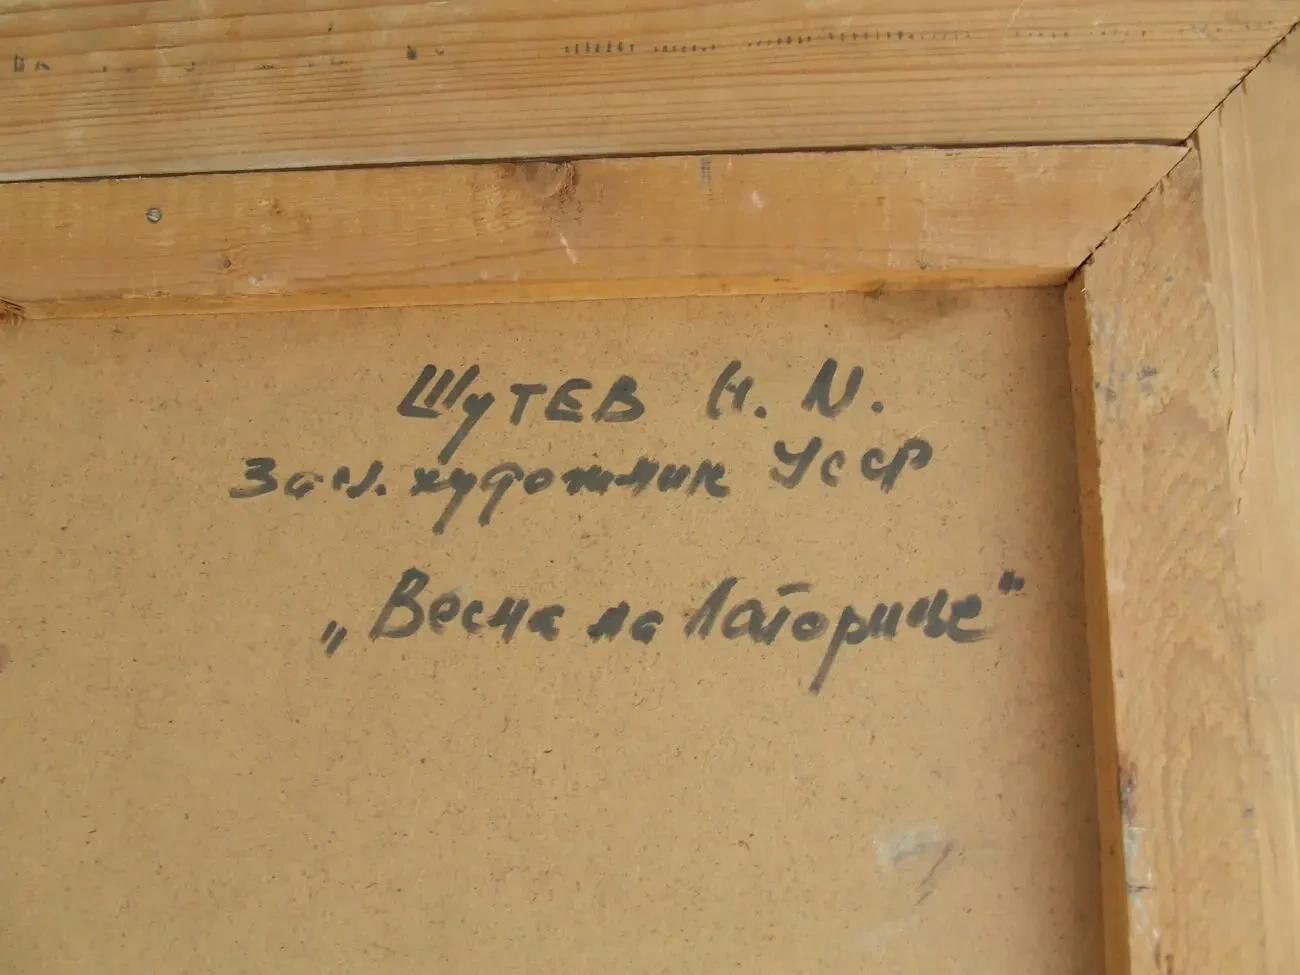 Шутев И. И.
Засл. художник УССР
„Весна на Латорице"